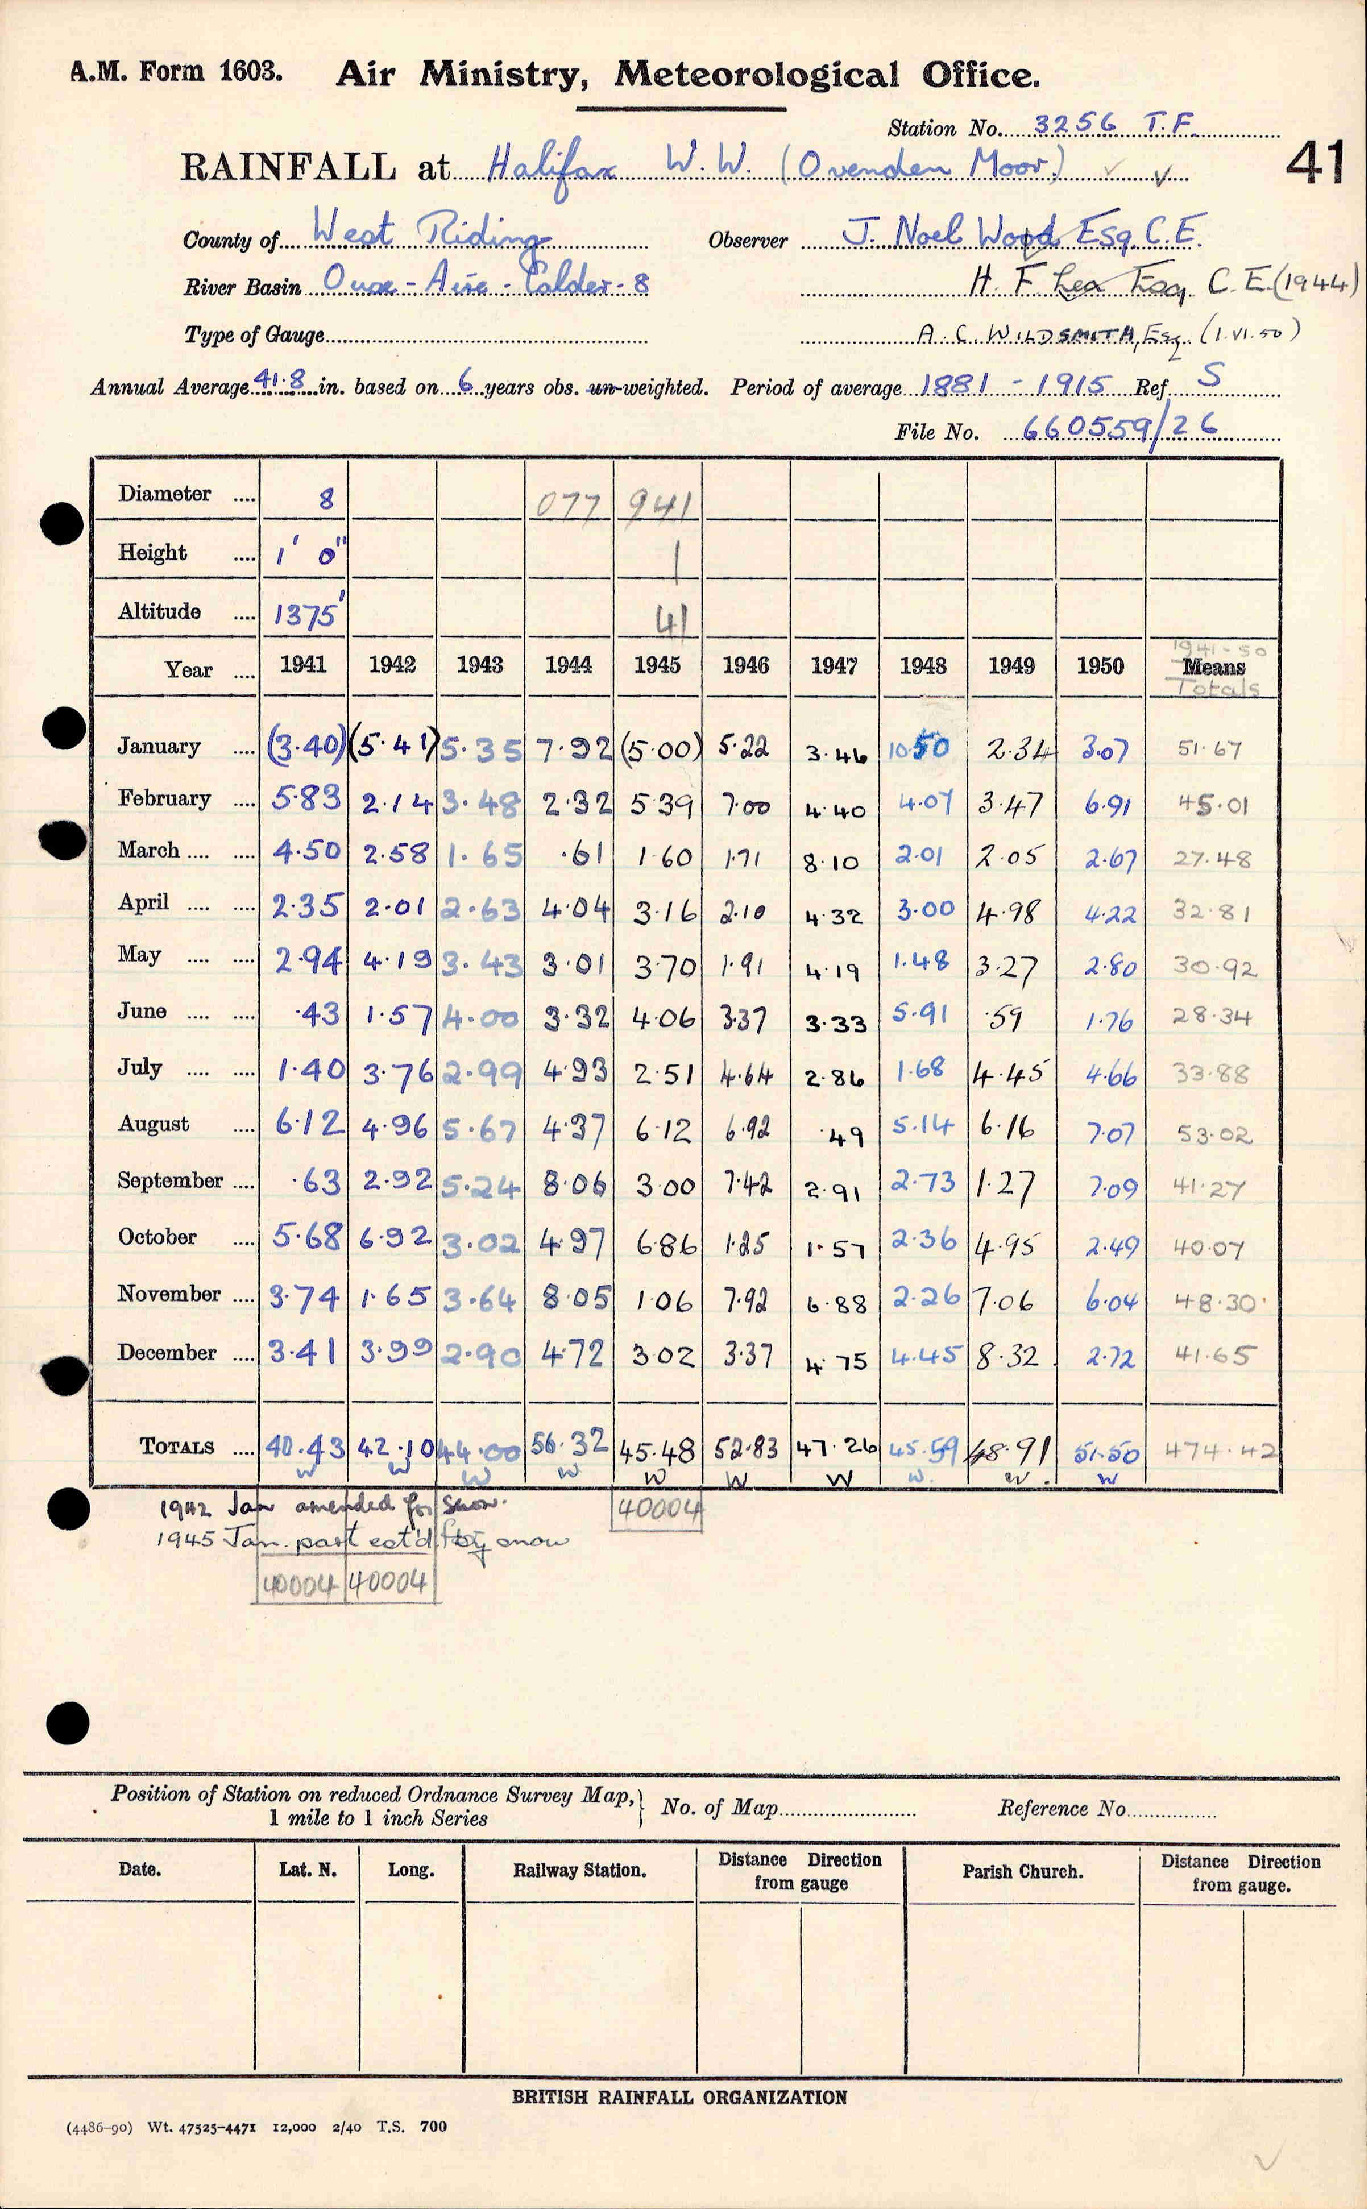 A.M. Form 1603. Air Ministry, Meteorological Office.
Station No. 3256 T.F.
RAINFALL at Halifax W.W. (Ovenden Moor) 41
County of West Riding Observer J. Noel Wood Esq. C.E.
River Basin Ouse - Aire - Calder - 8 H. F. Lea Esq C.E. (1944)
Type of Gauge A. C. WILDSMITH, Esq. (1.VI.50)
Annual Average 41.8 in. based on 6 years obs. un-weighted. Period of average 1881 - 1915 Ref. S
File No. 660559/26
Diameter 8 077 941
Height 1' 0" 1
Altitude 1375' 41
Year 1941 1942 1943 1944 1945 1946 1947 1948 1949 1950 1941-50 Means Totals
January (3.40) (5.41) 5.35 7.92 (5.00) 5.22 3.46 10.50 2.34 3.07 51.67
February 5.83 2.14 3.48 2.32 5.39 7.00 4.40 4.07 3.47 6.91 45.01
March 4.50 2.58 1.65 .61 1.60 1.71 8.10 2.01 2.05 2.67 27.48
April 2.35 2.01 2.63 4.04 3.16 2.10 4.32 3.00 4.98 4.22 32.81
May 2.94 4.19 3.43 3.01 3.70 1.91 4.19 1.48 3.27 2.80 30.92
June .43 1.57 4.00 3.32 4.06 3.37 3.33 5.91 .59 1.76 28.34
July 1.40 3.76 2.99 4.93 2.51 4.64 2.86 1.68 4.45 4.66 33.88
August 6.12 4.96 5.67 4.37 6.12 6.92 .49 5.14 6.16 7.07 53.02
September .63 2.92 5.24 8.06 3.00 7.42 2.91 2.73 1.27 7.09 41.27
October 5.68 6.92 3.02 4.97 6.86 1.25 1.57 2.36 4.95 2.49 40.07
November 3.74 1.65 3.64 8.05 1.06 7.92 6.88 2.26 7.06 6.04 48.30
December 3.41 3.99 2.90 4.72 3.02 3.37 4.75 4.45 8.32 2.72 41.65
TOTALS 40.43 42.10 44.00 56.32 45.48 52.83 47.26 45.59 48.91 51.50 474.42
W W W W W W W W W W
1942 Jan amended for snow. 40004
1945 Jan. part est'd snow
40004 40004
Position of Station on reduced Ordnance Survey Map, 1 mile to 1 inch Series } No. of Map Reference No.
Date. Lat. N. Long. Railway Station. Distance Direction from gauge Parish Church. Distance Direction from gauge.
BRITISH RAINFALL ORGANIZATION
(4486-90) Wt. 47525-4471 12,000 2/40 T.S. 700